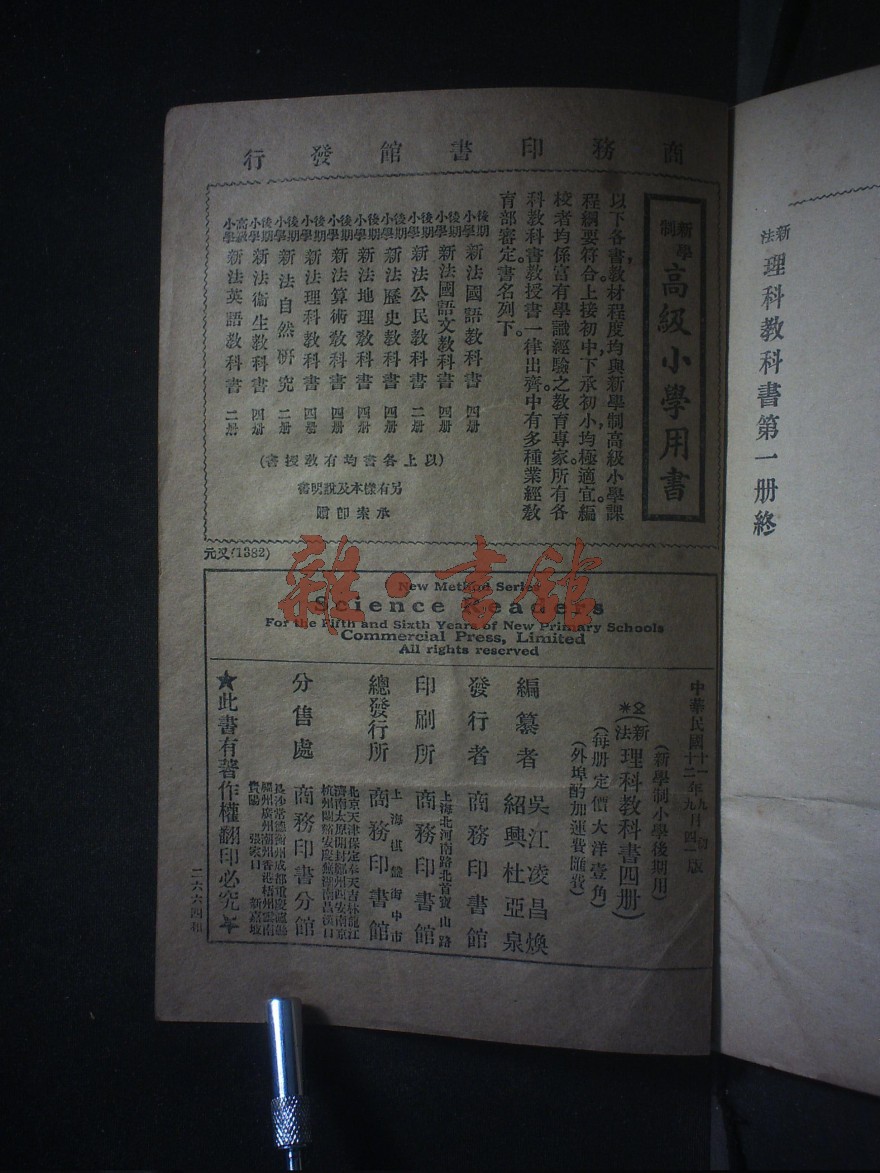 新法理科教科書第一册終
商務印書館發行
新學制高級小學用書
以下各書教材程度均與新學制高級小學課
程綱要符合。上接初中下承初小均極適宜。編
校者均係富有學識經驗之教育專家所有各
科教科書教授書一律出齊中有多種業經教
育部審定。書名列下。
後期小學 新法國語教科書 四册
後期小學 新法國語文教科書 四册
後期小學 新法公民教科書 二册
後期小學 新法歷史教科書 四册
後期小學 新法地理教科書 四册
後期小學 新法算術教科書 四册
後期小學 新法理科教科書 四册
後期小學 新法自然研究 二册
後期小學 新法衛生教科書 四册
高級小學 新法英語教科書 二册
(以上各書均有教授書)
另有樣本及說明書
承索即贈
元又(1382)
雜·書館
New Method Series
Science Readers
For the Fifth and Sixth Years of New Primary Schools
Commercial Press, Limited
All rights reserved
中華民國十一年九月初版
十二年九月四一版
(新學制小學後期用)
(新法理科教科書四册)
(每册定價大洋壹角)
(外埠酌加運費匯費)
編纂者 吳江凌昌煥
紹興杜亞泉
發行者 商務印書館
印刷所 上海北河南路北首寶山路
商務印書館
總發行所 上海棋盤街中市
商務印書館
分售處 商務印書分館
北京天津保定奉天吉林龍江
濟南太原開封鄭州西安南京
杭州蘭谿安慶蕪湖南昌漢口
長沙常德衡州成都重慶瀘縣
福州廣州潮州香港梧州雲南
貴陽 張家口 新嘉坡
★此書有著作權翻印必究★
二六六四